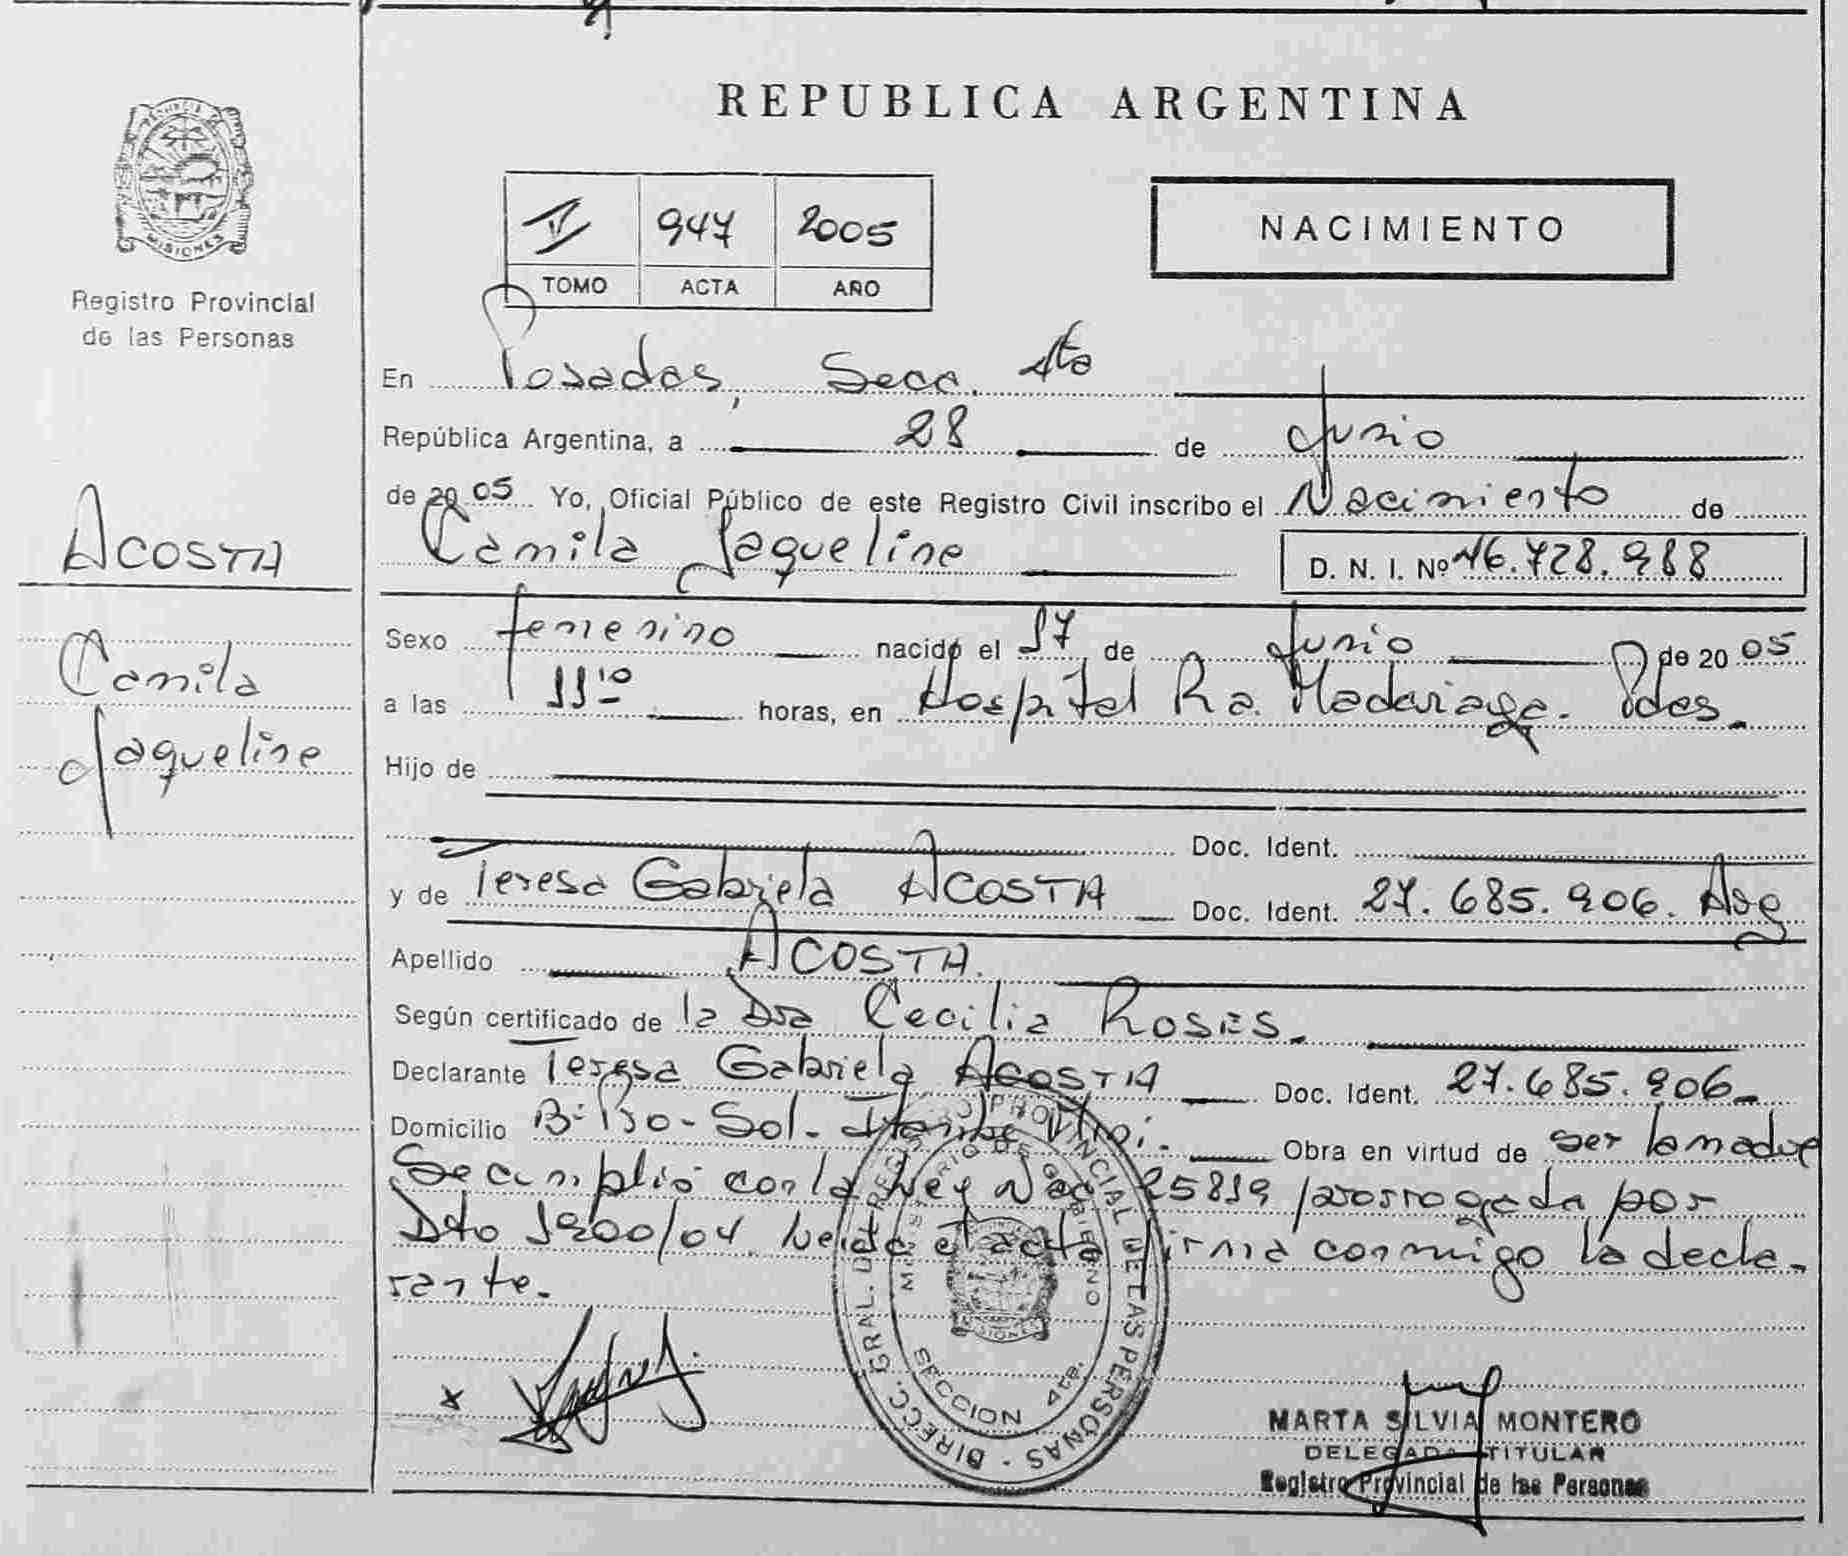 REPUBLICA ARGENTINA
MISIONES
Registro Provincial
de las Personas
947 2005
TOMO ACTA AÑO
NACIMIENTO
En Posadas, Secc. 4ta
República Argentina, a 28 de Junio
de 2005 Yo, Oficial Público de este Registro Civil inscribo el Nacimiento de
Camila Jaqueline D. N. I. Nº 46.728.988
ACOSTA
Camila
Jaqueline
Sexo femenino nacido el 17 de Junio de 2005
a las 11 10 horas, en Hospital Ra. Madariaga. Pdas.
Hijo de
Doc. Ident.
y de Teresa Gabriela ACOSTA Doc. Ident. 27.685.906. Arg
Apellido ACOSTA.
Según certificado de la Dra Cecilia ROSES.
Declarante Teresa Gabriela ACOSTA Doc. Ident. 27.685.906
Domicilio Sol. Obra en virtud de ser la madre
Se cumplió con la Ley Nac 25819 prorrogada por
Dto 1900/04. Leida el acta firma conmigo la decla-
rante.
x
DIRECC. GRAL. DEL REGISTRO PROVINCIAL DE LAS PERSONAS
MINISTERIO DE GOBIERNO
MISIONES
SECCION 4ta.
MARTA SILVIA MONTERO
DELEGADA TITULAR
Registro Provincial de las Personas